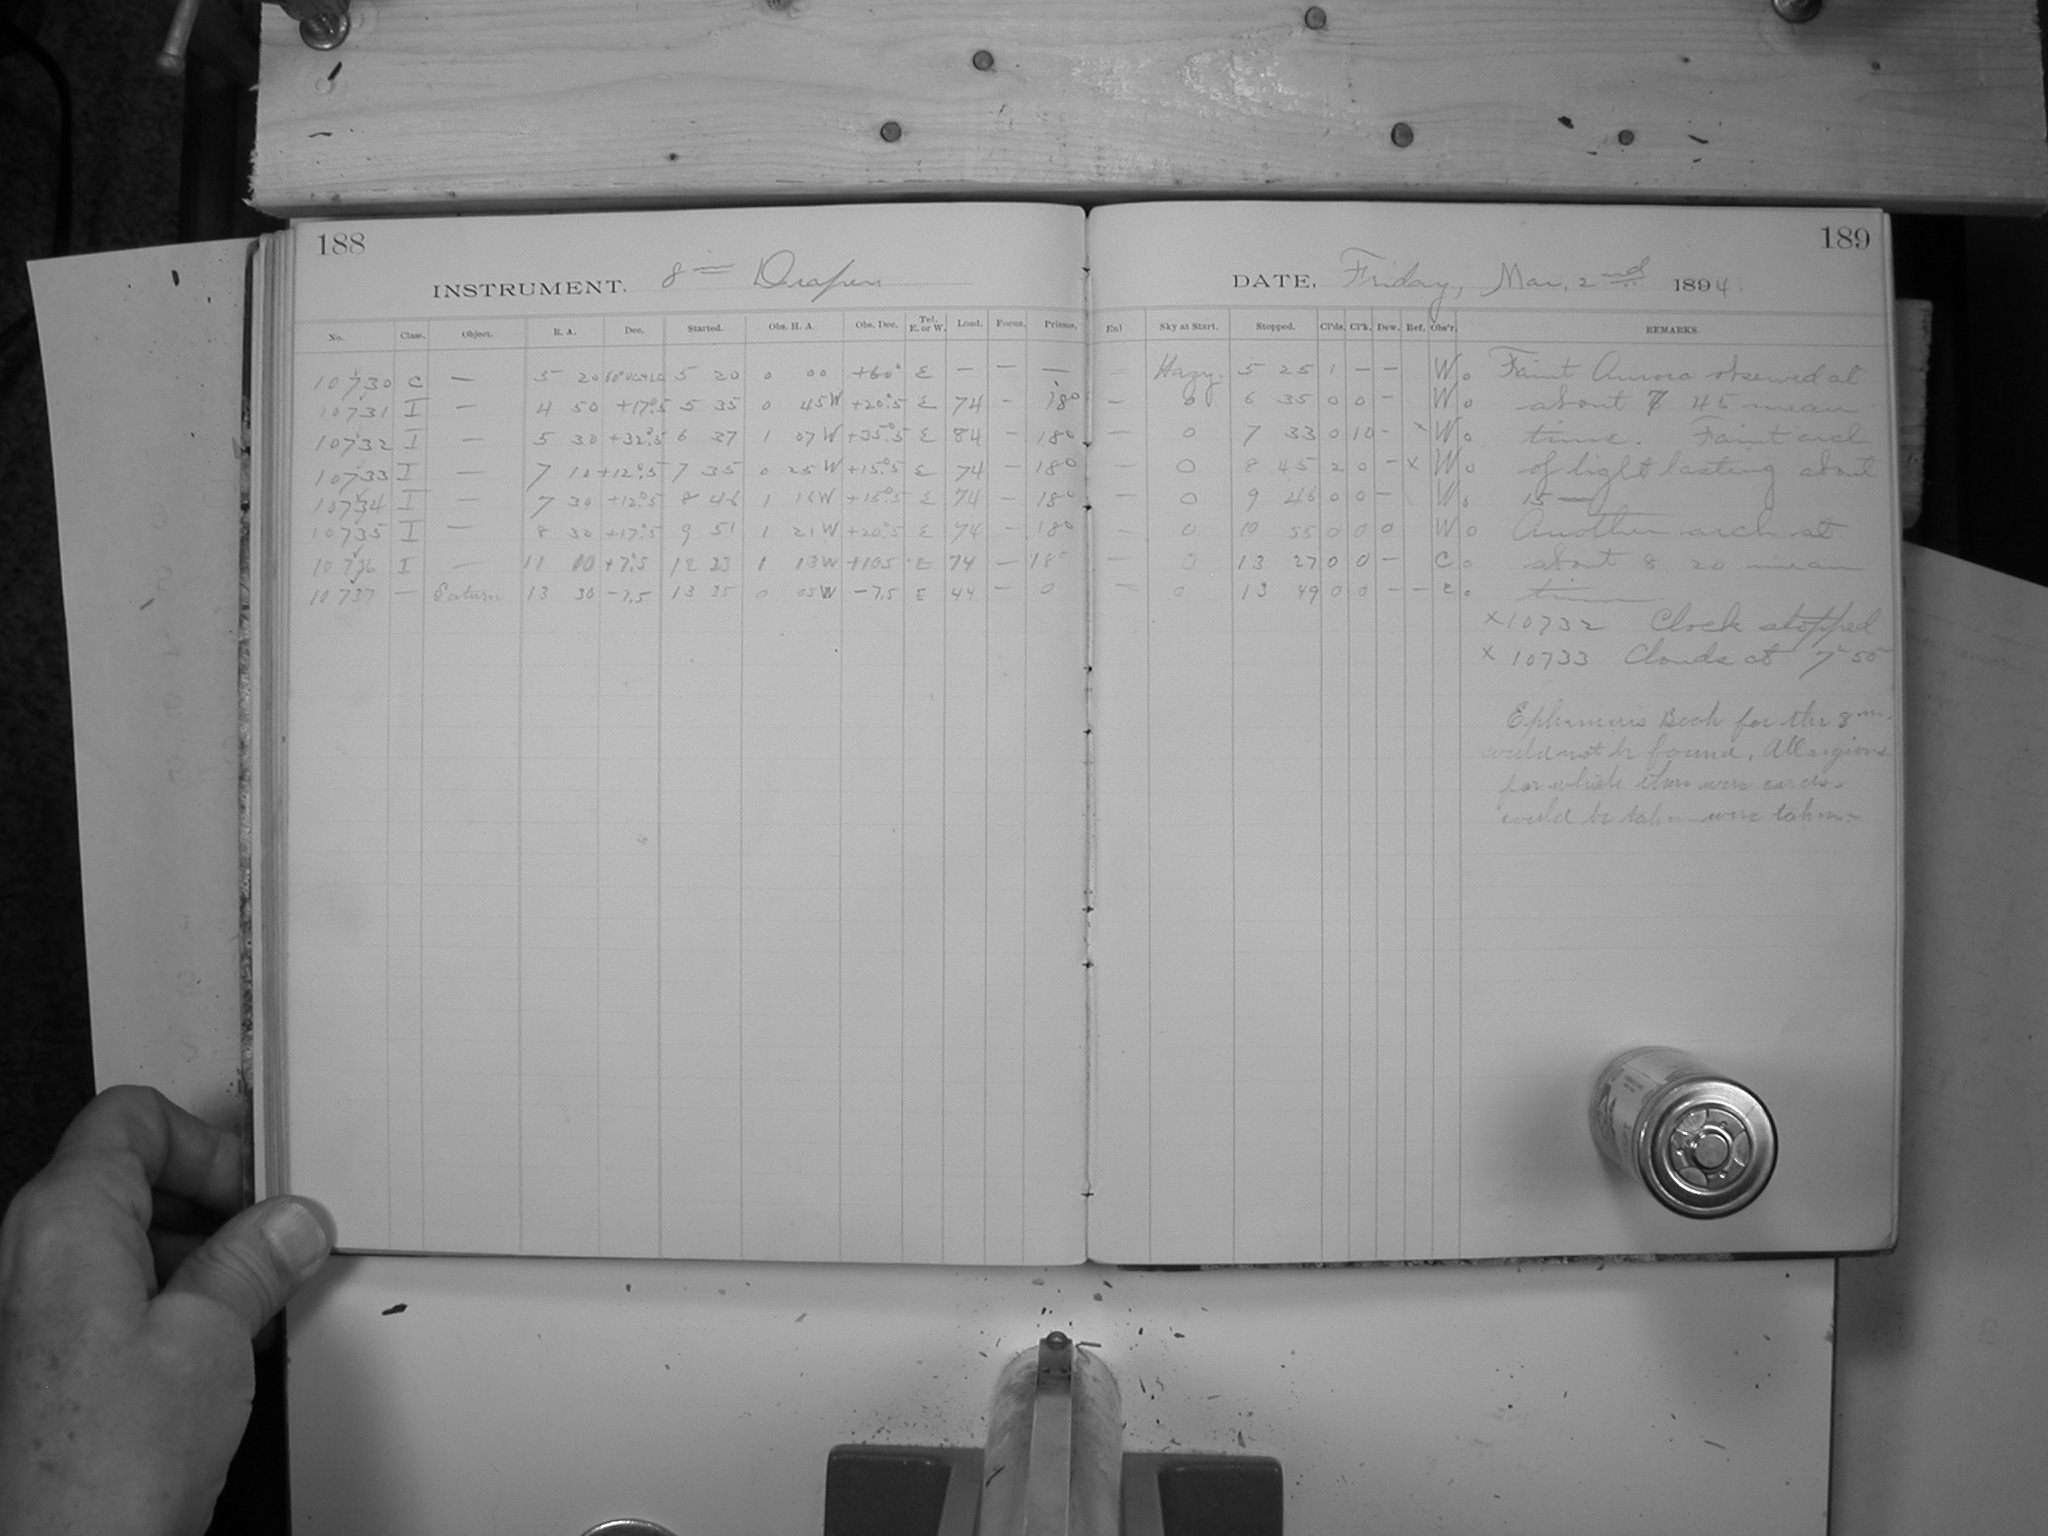 188
INSTRUMENT. 8 in Draper
No. Class. Object. R. A. Dec. Started. Obs. H. A. Obs. Dec. Tel. E. or W. Load. Focus. Prisms.
10730 C — 5 20 5 20 0 00 +60° E — — —
10731 I — 4 50 +17°.5 5 35 0 45W +20°.5 E 74 — 180
10732 I — 5 30 +32°.5 6 37 1 07W +35°.5 E 84 — 180
10733 I — 7 10 +12°.5 7 35 0 25W +15°.5 E 74 — 180
10734 I — 7 30 +12°.5 8 46 1 16W +15°.5 E 74 — 180
10735 I — 8 30 +17°.5 9 51 1 21W +20°.5 E 74 — 180
10736 I — 11 10 +7°.5 12 23 1 13W +10.5 E 74 — 180
10737 — Saturn 13 30 −7.5 13 35 0 05W −7.5 E 44 — 0
189
DATE, Friday, Mar. 2nd 1894
Enl Sky at Start. Stopped. Cl'ds. Cl'k. Dew. Ref. Obs'r. REMARKS.
— Hazy. 5 25 1 — — W. Faint Aurora observed at
— 0 6 35 0 0 — W. about 7 45 mean
— 0 7 33 0 10 — x W. time. Faint arch
— 0 8 45 2 0 — x W. of light lasting about
— 0 9 46 0 0 — W. 15 m
— 0 10 55 0 0 0 W. Another arch at
— 0 13 27 0 0 — C. about 8 20 mean
— 0 13 49 0 0 — — C. time
x 10732 Clock stopped
x 10733 Clouds at 7 50
Ephemeris Book for the 8 in.
could not be found. All regions
for which there were cards
could be taken were taken.